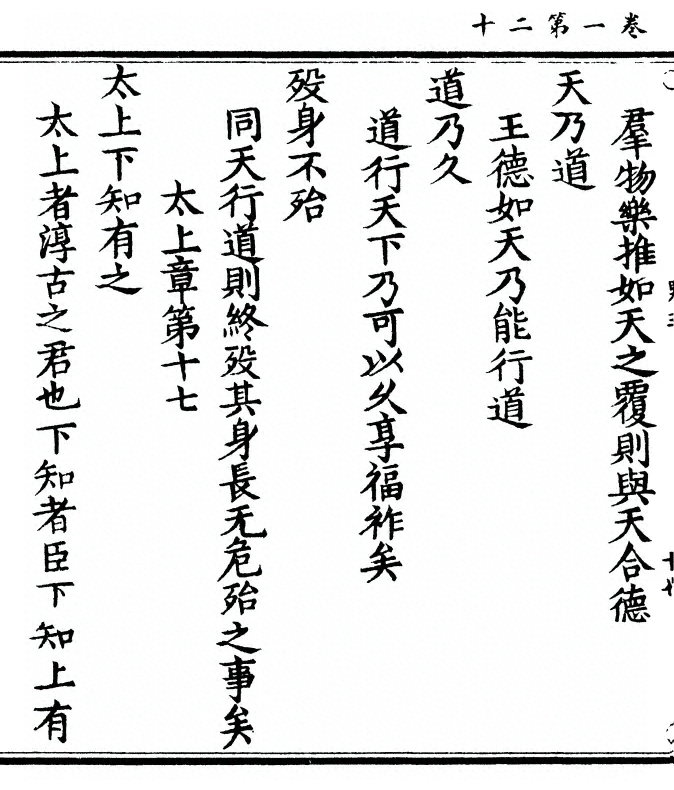 卷一第二十
羣物樂推如天之覆則與天合德
天乃道
王德如天乃能行道
道乃久
道行天下乃可以久享福祚矣
歿身不殆
同天行道則終歿其身長无危殆之事矣
太上章第十七
太上下知有之
太上者淳古之君也下知者臣下知上有